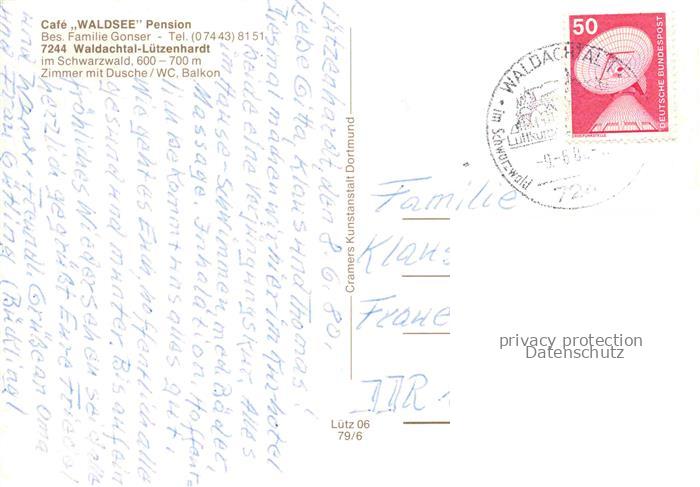 Café „WALDSEE" Pension
Bes. Familie Gonser - Tel. (07443) 8151
7244 Waldachtal-Lützenhardt
im Schwarzwald, 600–700 m
Zimmer mit Dusche/WC, Balkon
Lützenhardt, den 8.6.80,
Liebe Gitta, Klaus und Thomas!
Diesmal machen wir hier im Kurhotel
wieder eine Alles
im Hause Schwimmen, med Bäder,
Massage Inhalation, Hoffent-
lich bekommt uns alles gut,
Wie geht es Euch hoffentlich alle
gesund und munter. Bis auf ein
fröhliches Wiedersehen seid alle
herzlich gegrüßt Eure Friedel
und Grüße an Oma
und Frau
Cramers Kunstanstalt Dortmund
Lütz 06
79/6
50
DEUTSCHE BUNDESPOST
WALDACHTAL
Luftkur
im Schwarzwald
Familie
Klaus
privacy protection
Datenschutz